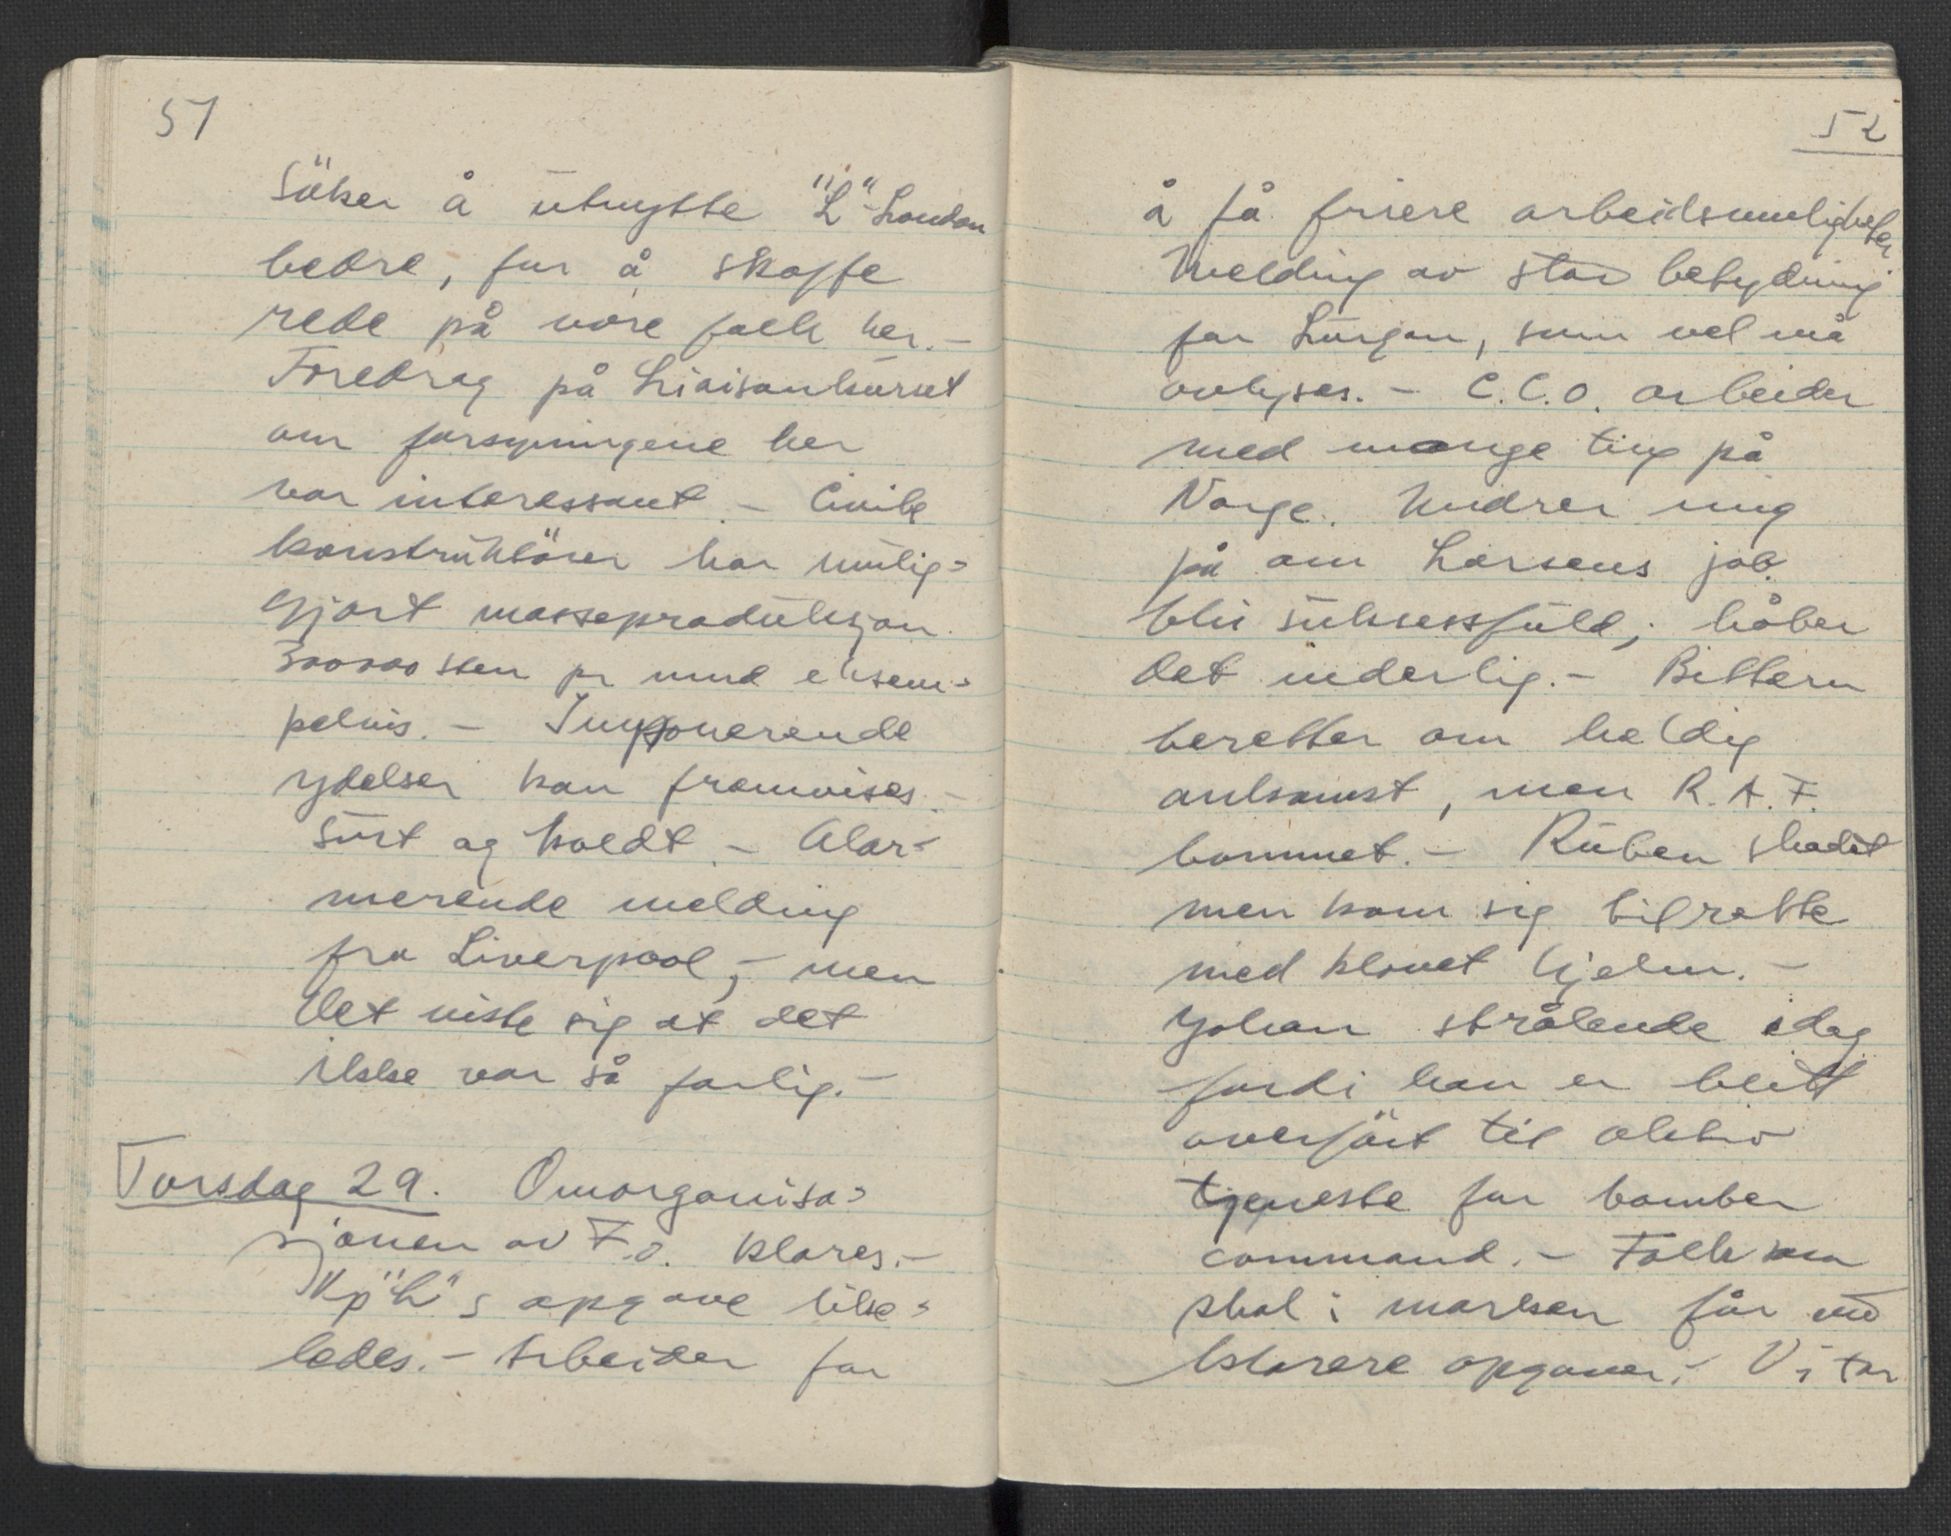 51
Söker å utnytte "L"-London
bedre, for å skaffe
rede på våre folk her. -
Foredrag på Liaisonkurset
om forsyningene her
var interessant. - Civile
konstruktörer har mulig=
gjort masseproduksjon.
300000 sten pr mnd eksem=
pelvis. - Imponerende
ydelser kan fremvises. -
Surt og koldt. - Alar=
merende melding
fra Liverpool, - men
det viste sig at det
ikke var så farlig. -
Torsdag 29. Omorganisa=
sjonen av F.O. klares. -
Kp "L"s opgave tilse=
ledes. - Arbeider for
52
å få friere arbeidsmuligheter
Melding av stor betydning
for Lurgan, som vel må
avlyses. - C.C.O. arbeider
med mange ting på
Norge. Undrer mig
på om Larsens job
blir suksessfuld; håber
det inderlig. - Bittern
beretter om heldig
ankomst, men R.A.F.
bommet. - Ruben skadet
men kom sig tilrette
med klovet hjelm. -
Johan strålende idag
fordi han er blitt
overfört til aktiv
tjeneste for bomber
command. - Folk som
skal i marken får nu
klarere opgaver. - Vi tar